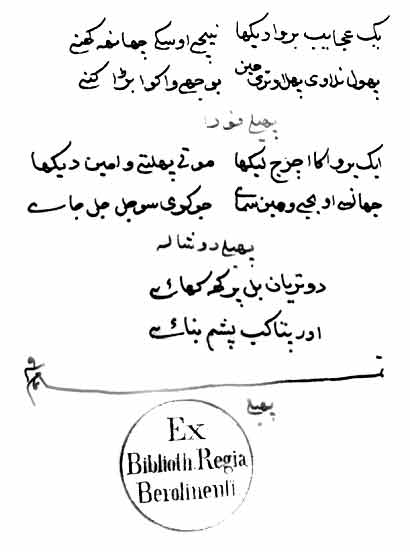 یک عجایب بروا دیکھا نیچے اوسکے چھانھ گھنے
پھول نلاوی پھلا وتری مین بوجھے واکو ا بڑا گنے
پھیلے فورا
ایک بروا کا اچرج لیکھا موتی پھلتے وا مین دیکھا
جہان سے او بجے و مین سماے جو کوی سو جل جل جاے
پھیلے دونتالہ
دو تریان بل پرکھ کھاے
اور پتا کب پشم بناے
پھیلے
Ex
Biblioth. Regia
Berolinenſi